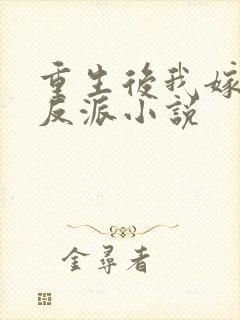 重生後我嫁
反派小說
金尋者